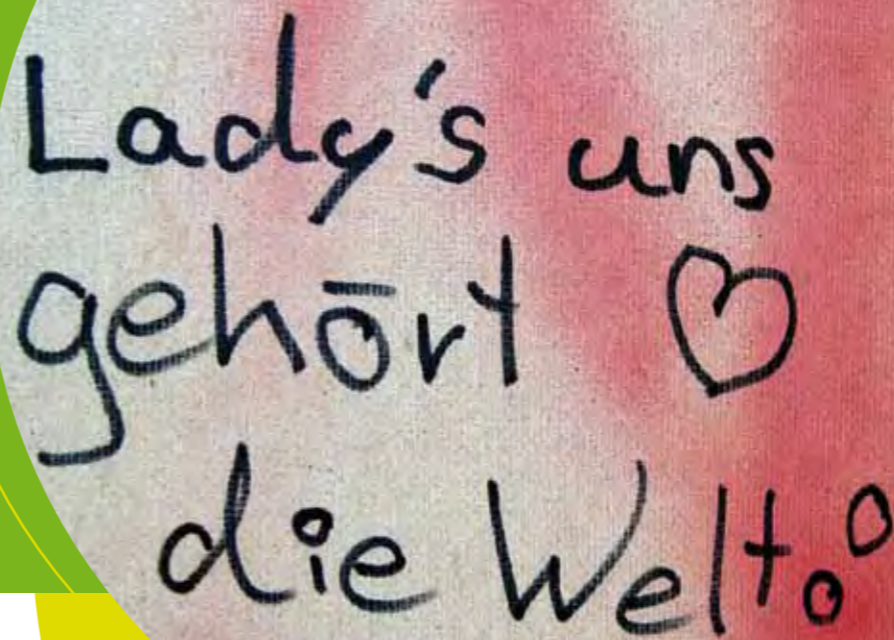 Lady's uns
gehört ♡
die Welt.